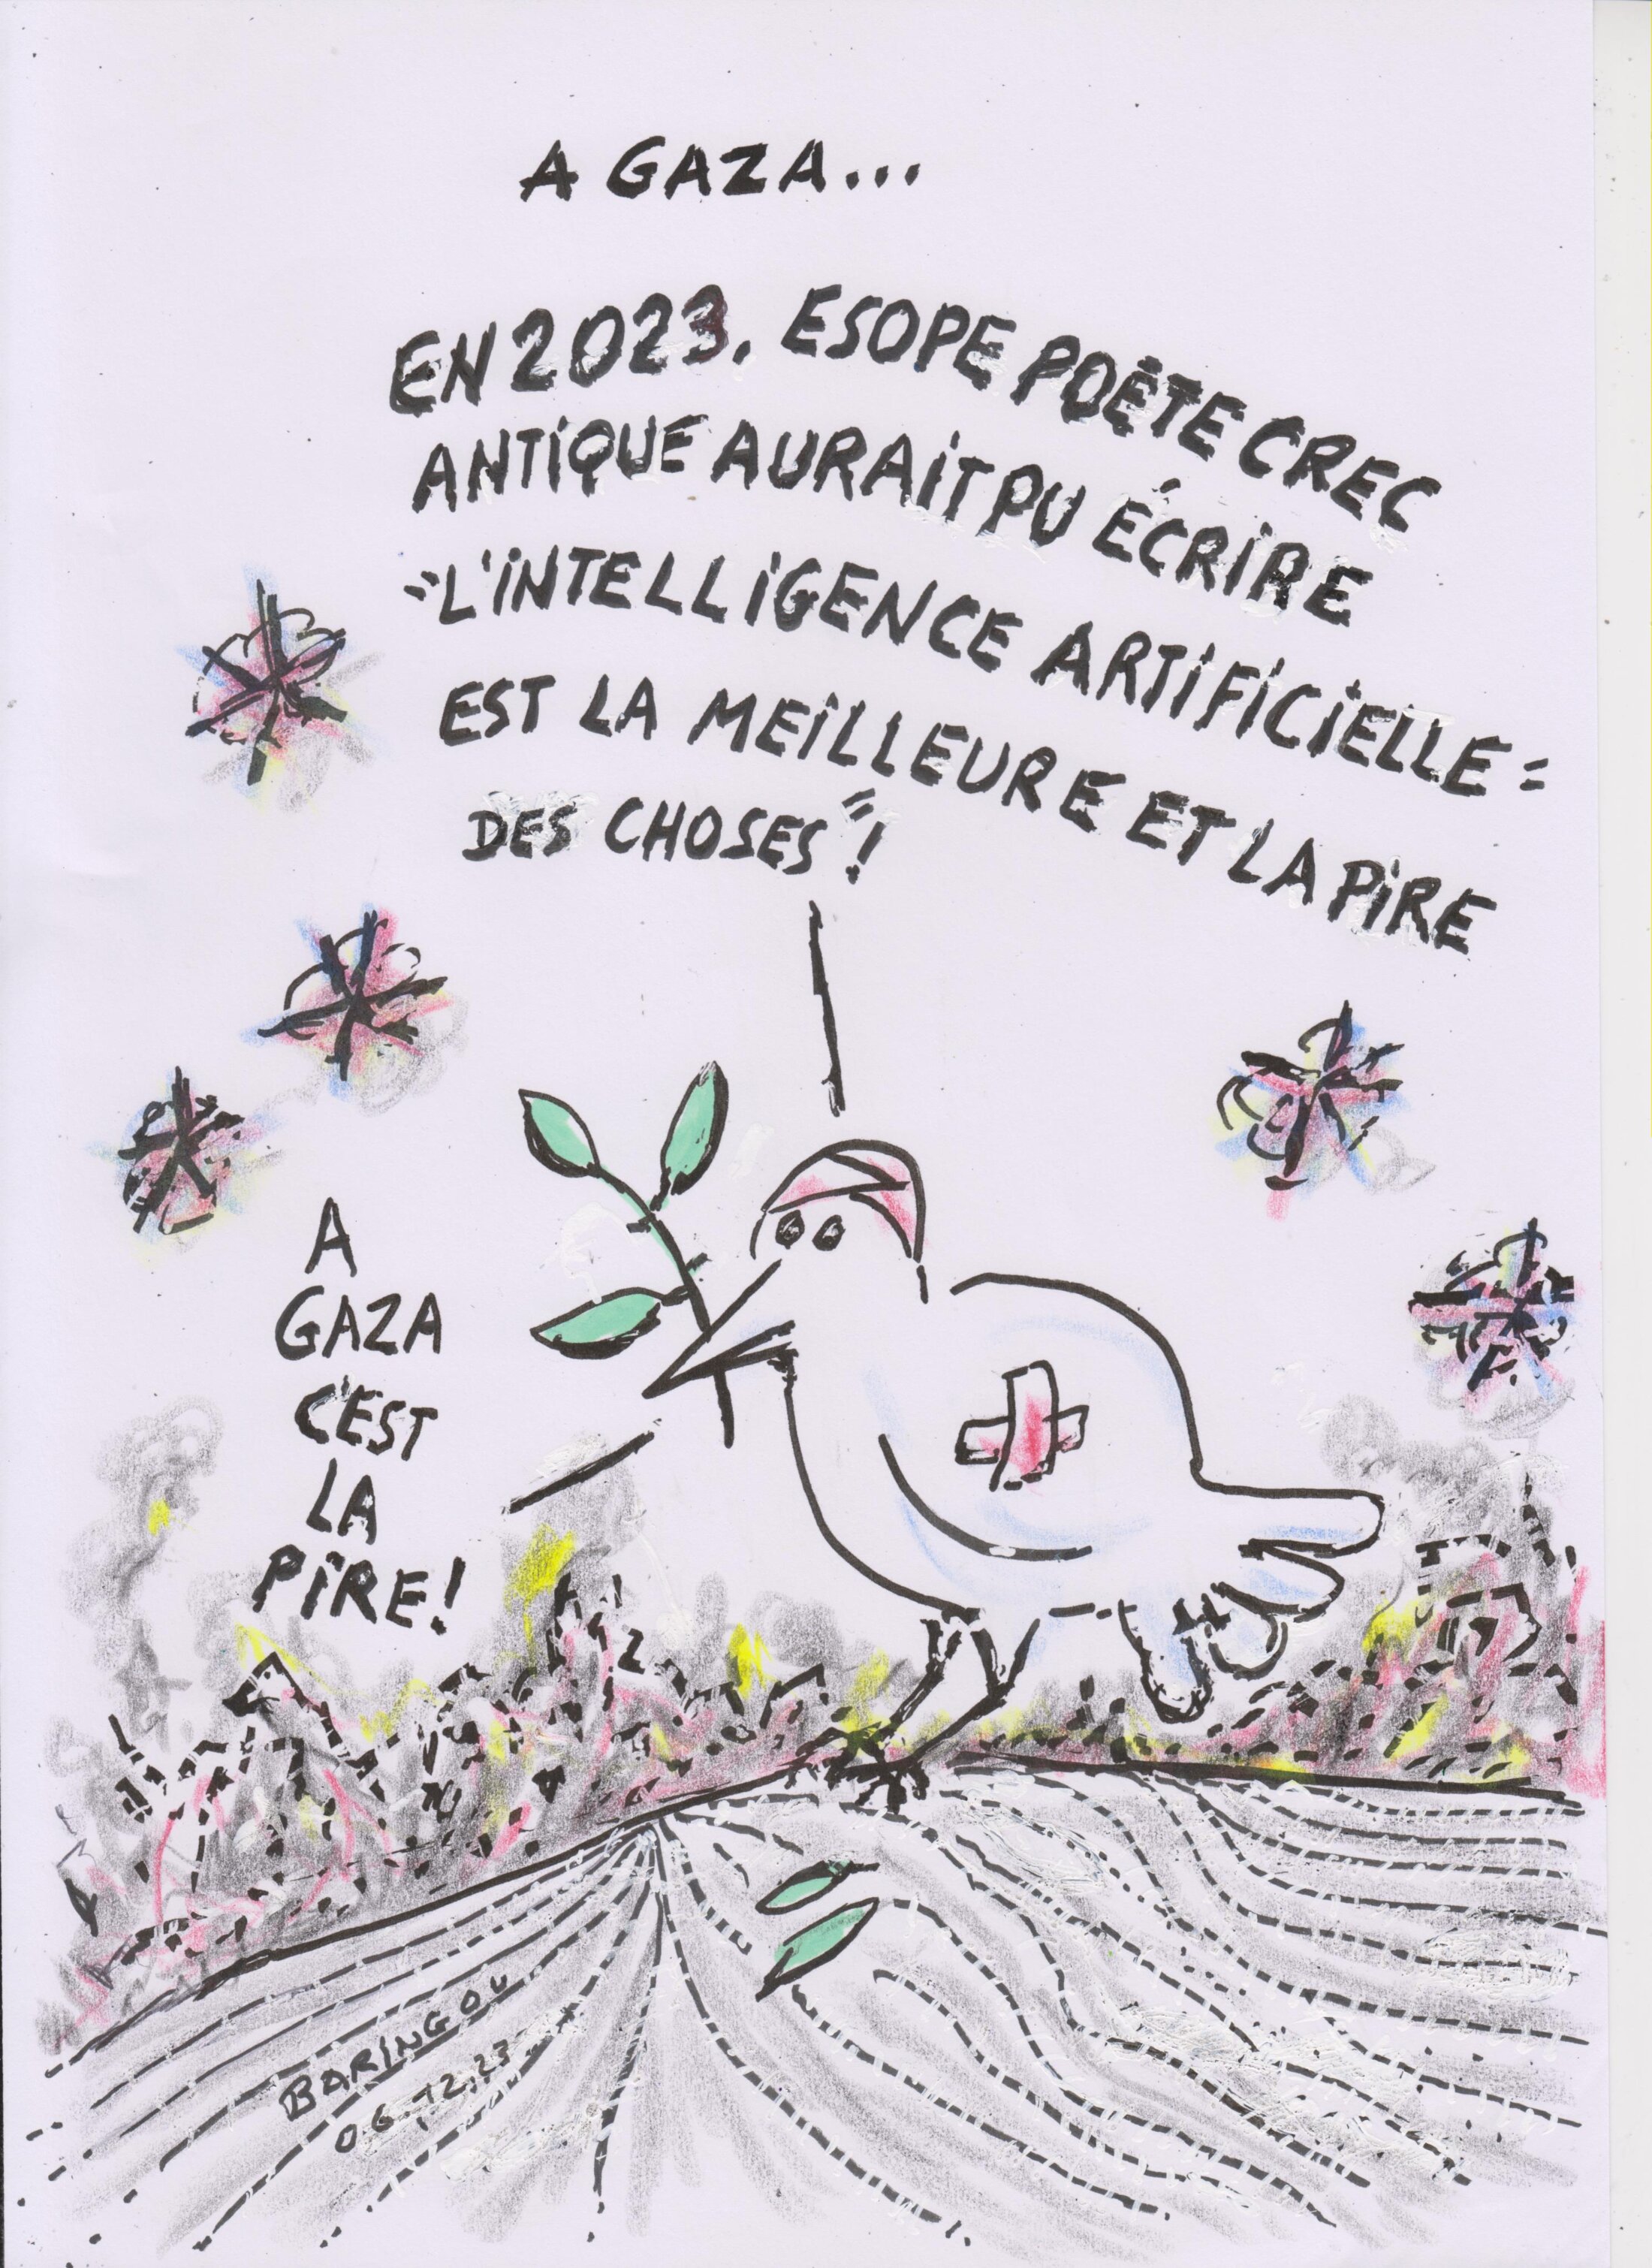 A GAZA...
EN 2023, ESOPE POÈTE CREC
ANTIQUE AURAIT PU ÉCRIRE
"L'INTELLIGENCE ARTIFICIELLE =
EST LA MEILLEURE ET LA PIRE
DES CHOSES"!
A
GAZA
C'EST
LA
PIRE!
BARINGOU
06.12.23